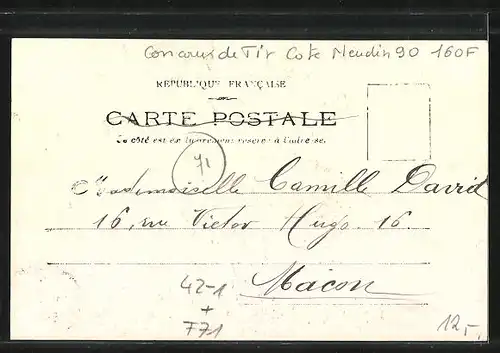 Concours de Tir Cote Neudin 90 160F
RÉPUBLIQUE FRANÇAISE
CARTE POSTALE
Ce côté est exclusivement réservé à l'adresse.
71
Mademoiselle Camille David
16, rue Victor Hugo 16
Mâcon
42-1
+
F71
12,-